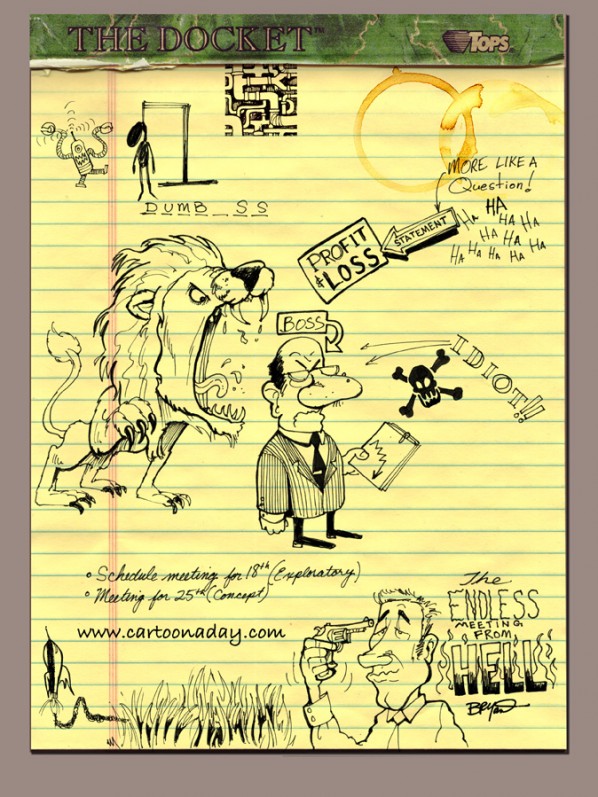 THE DOCKET™
TOPS
MORE LIKE A
Question!
HA
HA HA HA
HA HA
HA HA HA HA HA
STATEMENT
PROFIT
& LOSS
DUMB_SS
BOSS
IDIOT!!
• Schedule meeting for 18th (Exploratory)
• Meeting for 25th (Concept)
www.cartoonaday.com
The
ENDLESS
MEETING
FROM
HELL